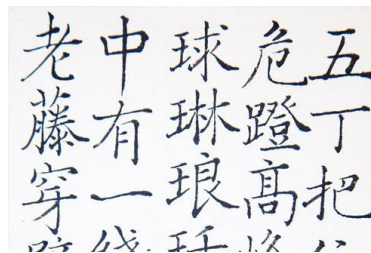 五丁把
危蹬高
球琳琅
中有一
老藤穿